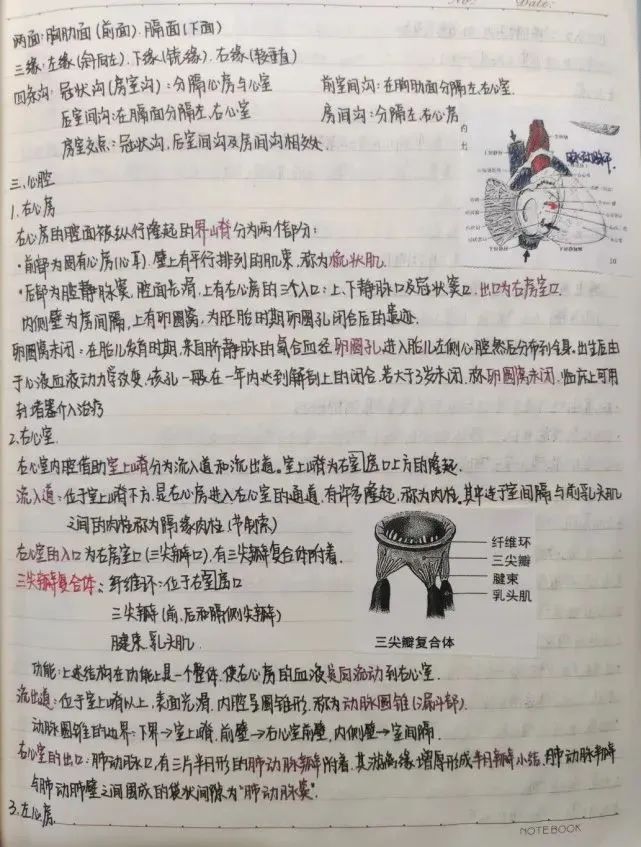 No:
Date:
两面:胸肋面(前面).膈面(下面)
三缘:左缘(斜向左).下缘(锐缘).右缘(较垂直)
四条沟:冠状沟(房室沟):分隔心房与心室 前室间沟:在胸肋面分隔左、右心室.
后室间沟:在膈面分隔左、右心室 房间沟:分隔左、右心房
房室交点:冠状沟,后室间沟及房间沟相交处.
三、心腔
1.右心房
右心房的腔面被纵行隆起的界山嵴分为两个部分:
·前部为固有心房(心耳).壁上有平行排列的肌束,称为梳状肌.
·后部为腔静脉窦,腔面光滑,上有右心房的三个入口:上、下静脉口及冠状窦口.出口为右房室口.
内侧壁为房间隔,上有卵圆窝,为胚胎时期卵圆孔闭合后的遗迹.
卵圆窝未闭:在胎儿发育时期,来自脐静脉的氧合血经卵圆孔进入胎儿左侧心腔然后分布到全身.出生后由
于心液血液动力学改变,该孔一般在一年内达到解剖上的闭合.若大于3岁未闭,称卵圆窝未闭.临床上可用
封堵器介入治疗
2.右心室.
右心室内腔借助室上嵴分为流入道和流出道。室上嵴为右室口上方的隆起.
流入道:位于室上嵴下方.是右心房进入右心室的通道.有许多隆起,称为肉柱。其中连于室间隔与前乳头肌
之间的肉柱称为隔缘肉柱(节制索)
右心室的入口为右房室口(三尖瓣口).有三尖瓣复合体附着.
三尖瓣复合体:纤维环:位于右室口
三尖瓣(前、后和隔侧尖瓣)
腱束.乳头肌.
纤维环
三尖瓣
腱束
乳头肌
三尖瓣复合体
功能:上述结构在功能上是一个整体.使右心房的血液单向流动到右心室.
流出道:位于室上嵴以上,表面光滑,内腔呈圆锥形.称为动脉圆锥(漏斗部).
动脉圆锥的边界:下界→室上嵴.前壁→右心室前壁,内侧壁→室间隔.
右心室的出口:肺动脉口,有三片半月形的肺动脉瓣附着.其游离缘增厚形成半月瓣小结.肺动脉瓣
与肺动脉壁之间围成的袋状间隙为"肺动脉窦".
3.左心房.
NOTEBOOK